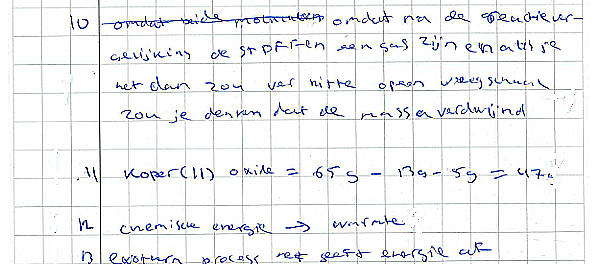 10 omdat beide moleculen omdat na de reactiever-
gelijking de stoffen een gas zijn en als je
het dan zou ver hitte op een weegschaal
zou je denken dat de massa verdwijnd
11 Koper(II) oxide = 65g - 13g - 5g = 47g
12 chemische energie → warmte
13 exotherm process het geeft energie af